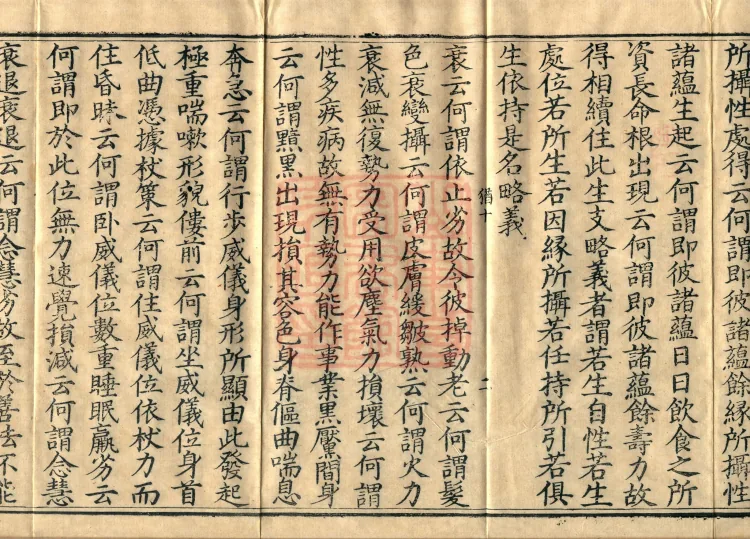 所攝性處得云何謂即彼諸蘊餘緣所攝性
諸蘊生起云何謂即彼諸蘊日日飲食之所
資長命根出現云何謂即彼諸蘊餘壽力故
得相續住此生支略義者謂若生自性若生
處位若所生若因緣所攝若任持所引若俱
生依持是名略義
猶十 二
衰云何謂依止劣故令彼掉動老云何謂髮
色衰變攝云何謂皮膚緩皺熟云何謂火力
衰減無復勢力受用欲塵氣力損壞云何謂
性多疾病故無有勢力能作事業黑黶間身
云何謂黯黑出現損其容色身脊傴曲喘息
奔急云何謂行步威儀身形所顯由此發起
極重喘嗽形貌僂前云何謂坐威儀位身首
低曲憑據杖策云何謂住威儀位依杖力而
住昏昧云何謂卧威儀位數重睡眠羸劣云
何謂即於此位無力速覺損減云何謂念慧
衰退衰退云何謂念慧劣故至於善法不能